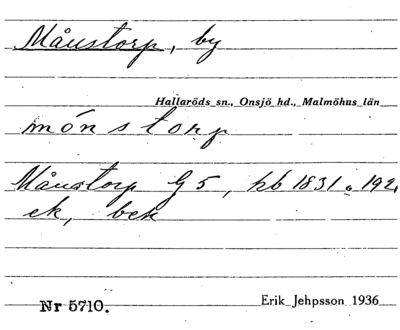 Månstorp, by
Hallaröds sn., Onsjö hd., Malmöhus län
mǻnstorp
Månstorp G 5, hb 1831 o. 192
ek, bek
Nr 5710.
Erik Jehpsson 1936